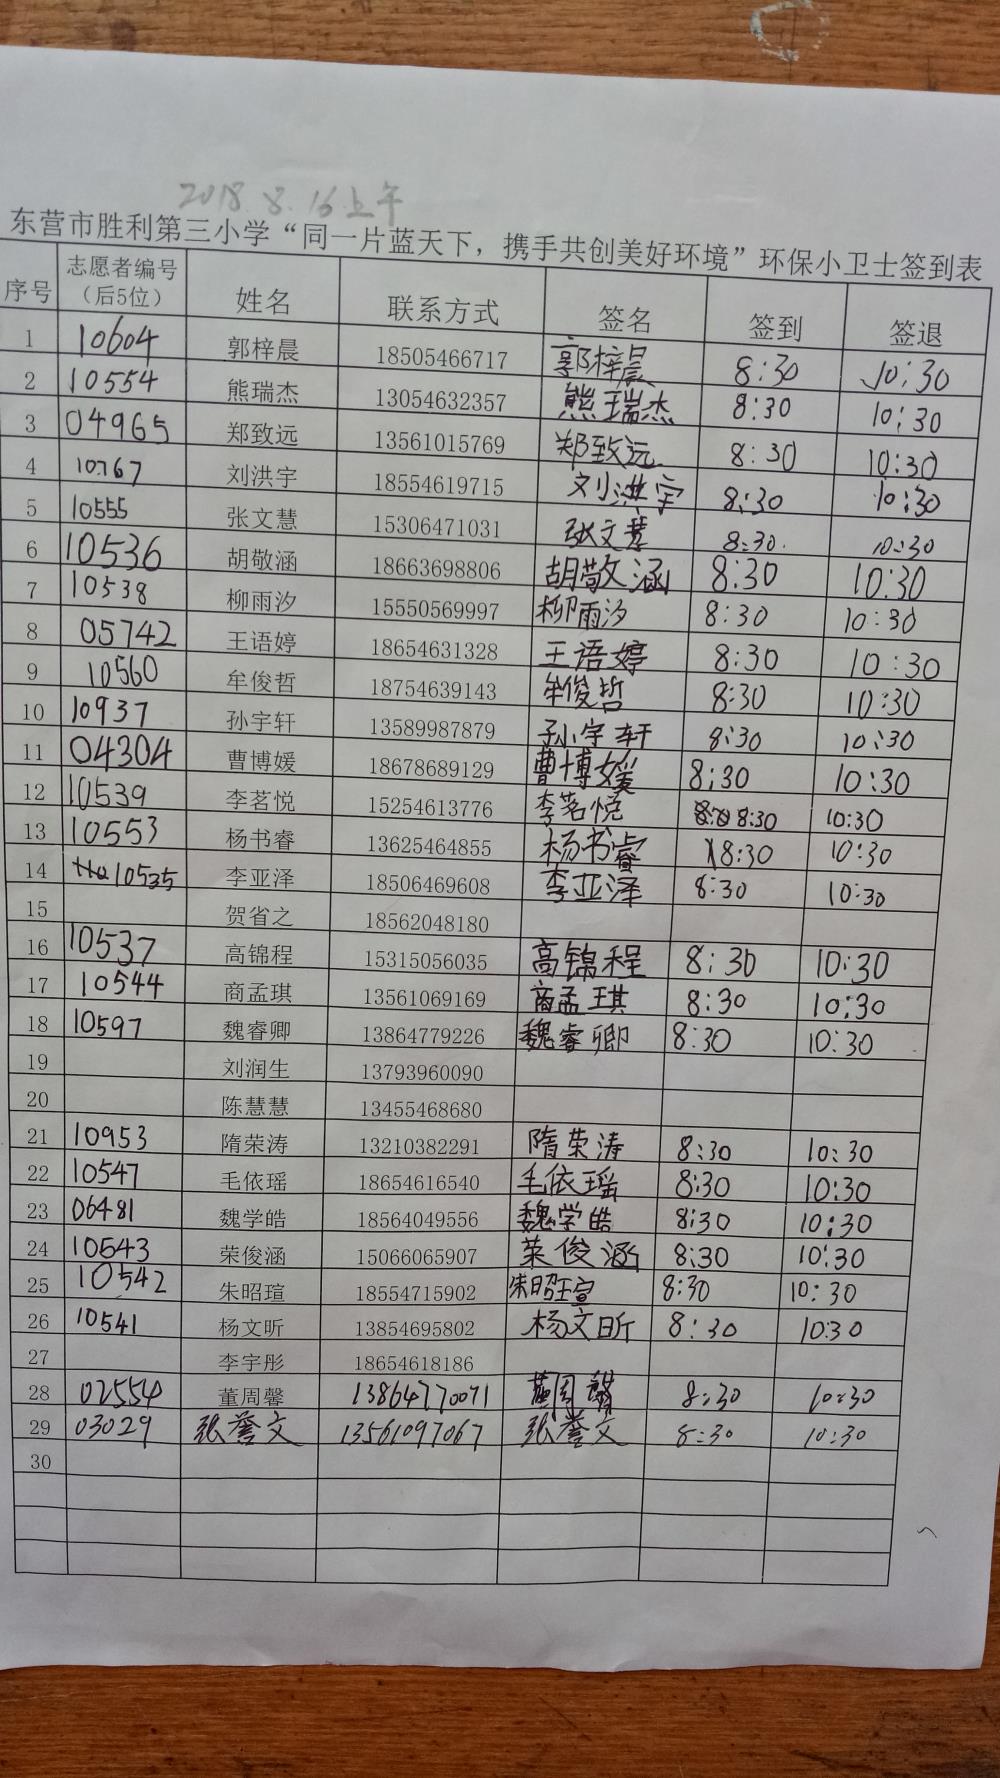 2018.8.16上午
东营市胜利第三小学“同一片蓝天下，携手共创美好环境”环保小卫士签到表
序号 志愿者编号（后5位） 姓名 联系方式 签名 签到 签退
1 10604 郭梓晨 18505466717 郭梓晨 8:30 10:30
2 10554 熊瑞杰 13054632357 熊瑞杰 8:30 10:30
3 04965 郑致远 13561015769 郑致远 8:30 10:30
4 10767 刘洪宇 18554619715 刘洪宇 8:30 10:30
5 10555 张文慧 15306471031 张文慧 8:30 10:30
6 10536 胡敬涵 18663698806 胡敬涵 8:30 10:30
7 10538 柳雨汐 15550569997 柳雨汐 8:30 10:30
8 05742 王语婷 18654631328 王语婷 8:30 10:30
9 10560 牟俊哲 18754639143 牟俊哲 8:30 10:30
10 10937 孙宇轩 13589987879 孙宇轩 8:30 10:30
11 04304 曹博媛 18678689129 曹博媛 8:30 10:30
12 10539 李茗悦 15254613776 李茗悦 8:30 10:30
13 10553 杨书睿 13625464855 杨书睿 8:30 10:30
14 10535 李亚泽 18506469608 李亚泽 8:30 10:30
15 贺省之 18562048180
16 10537 高锦程 15315056035 高锦程 8:30 10:30
17 10544 商孟琪 13561069169 商孟琪 8:30 10:30
18 10597 魏睿卿 13864779226 魏睿卿 8:30 10:30
19 刘润生 13793960090
20 陈慧慧 13455468680
21 10953 隋荣涛 13210382291 隋荣涛 8:30 10:30
22 10547 毛依瑶 18654616540 毛依瑶 8:30 10:30
23 06481 魏学皓 18564049556 魏学皓 8:30 10:30
24 10543 荣俊涵 15066065907 荣俊涵 8:30 10:30
25 10542 朱昭瑄 18554715902 朱昭瑄 8:30 10:30
26 10541 杨文昕 13854695802 杨文昕 8:30 10:30
27 李宇彤 18654618186
28 02554 董周馨 13864770071 董周馨 8:30 10:30
29 03029 张誉文 13561097067 张誉文 8:30 10:30
30